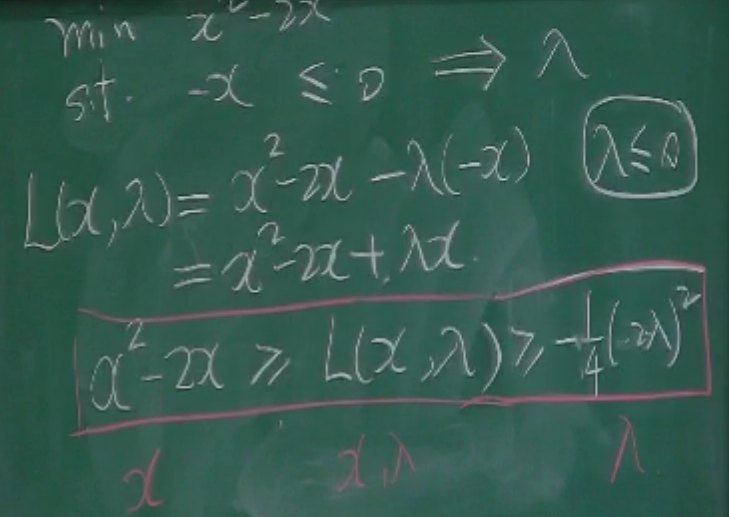 min x²-2x
s.t. -x ≤ 0 ⟹ λ
λ≤0
L(x,λ)= x²-2x -λ(-x)
= x²-2x+λx.
x²-2x ≥ L(x,λ) ≥ -1/4(-2λ)²
x x,λ λ